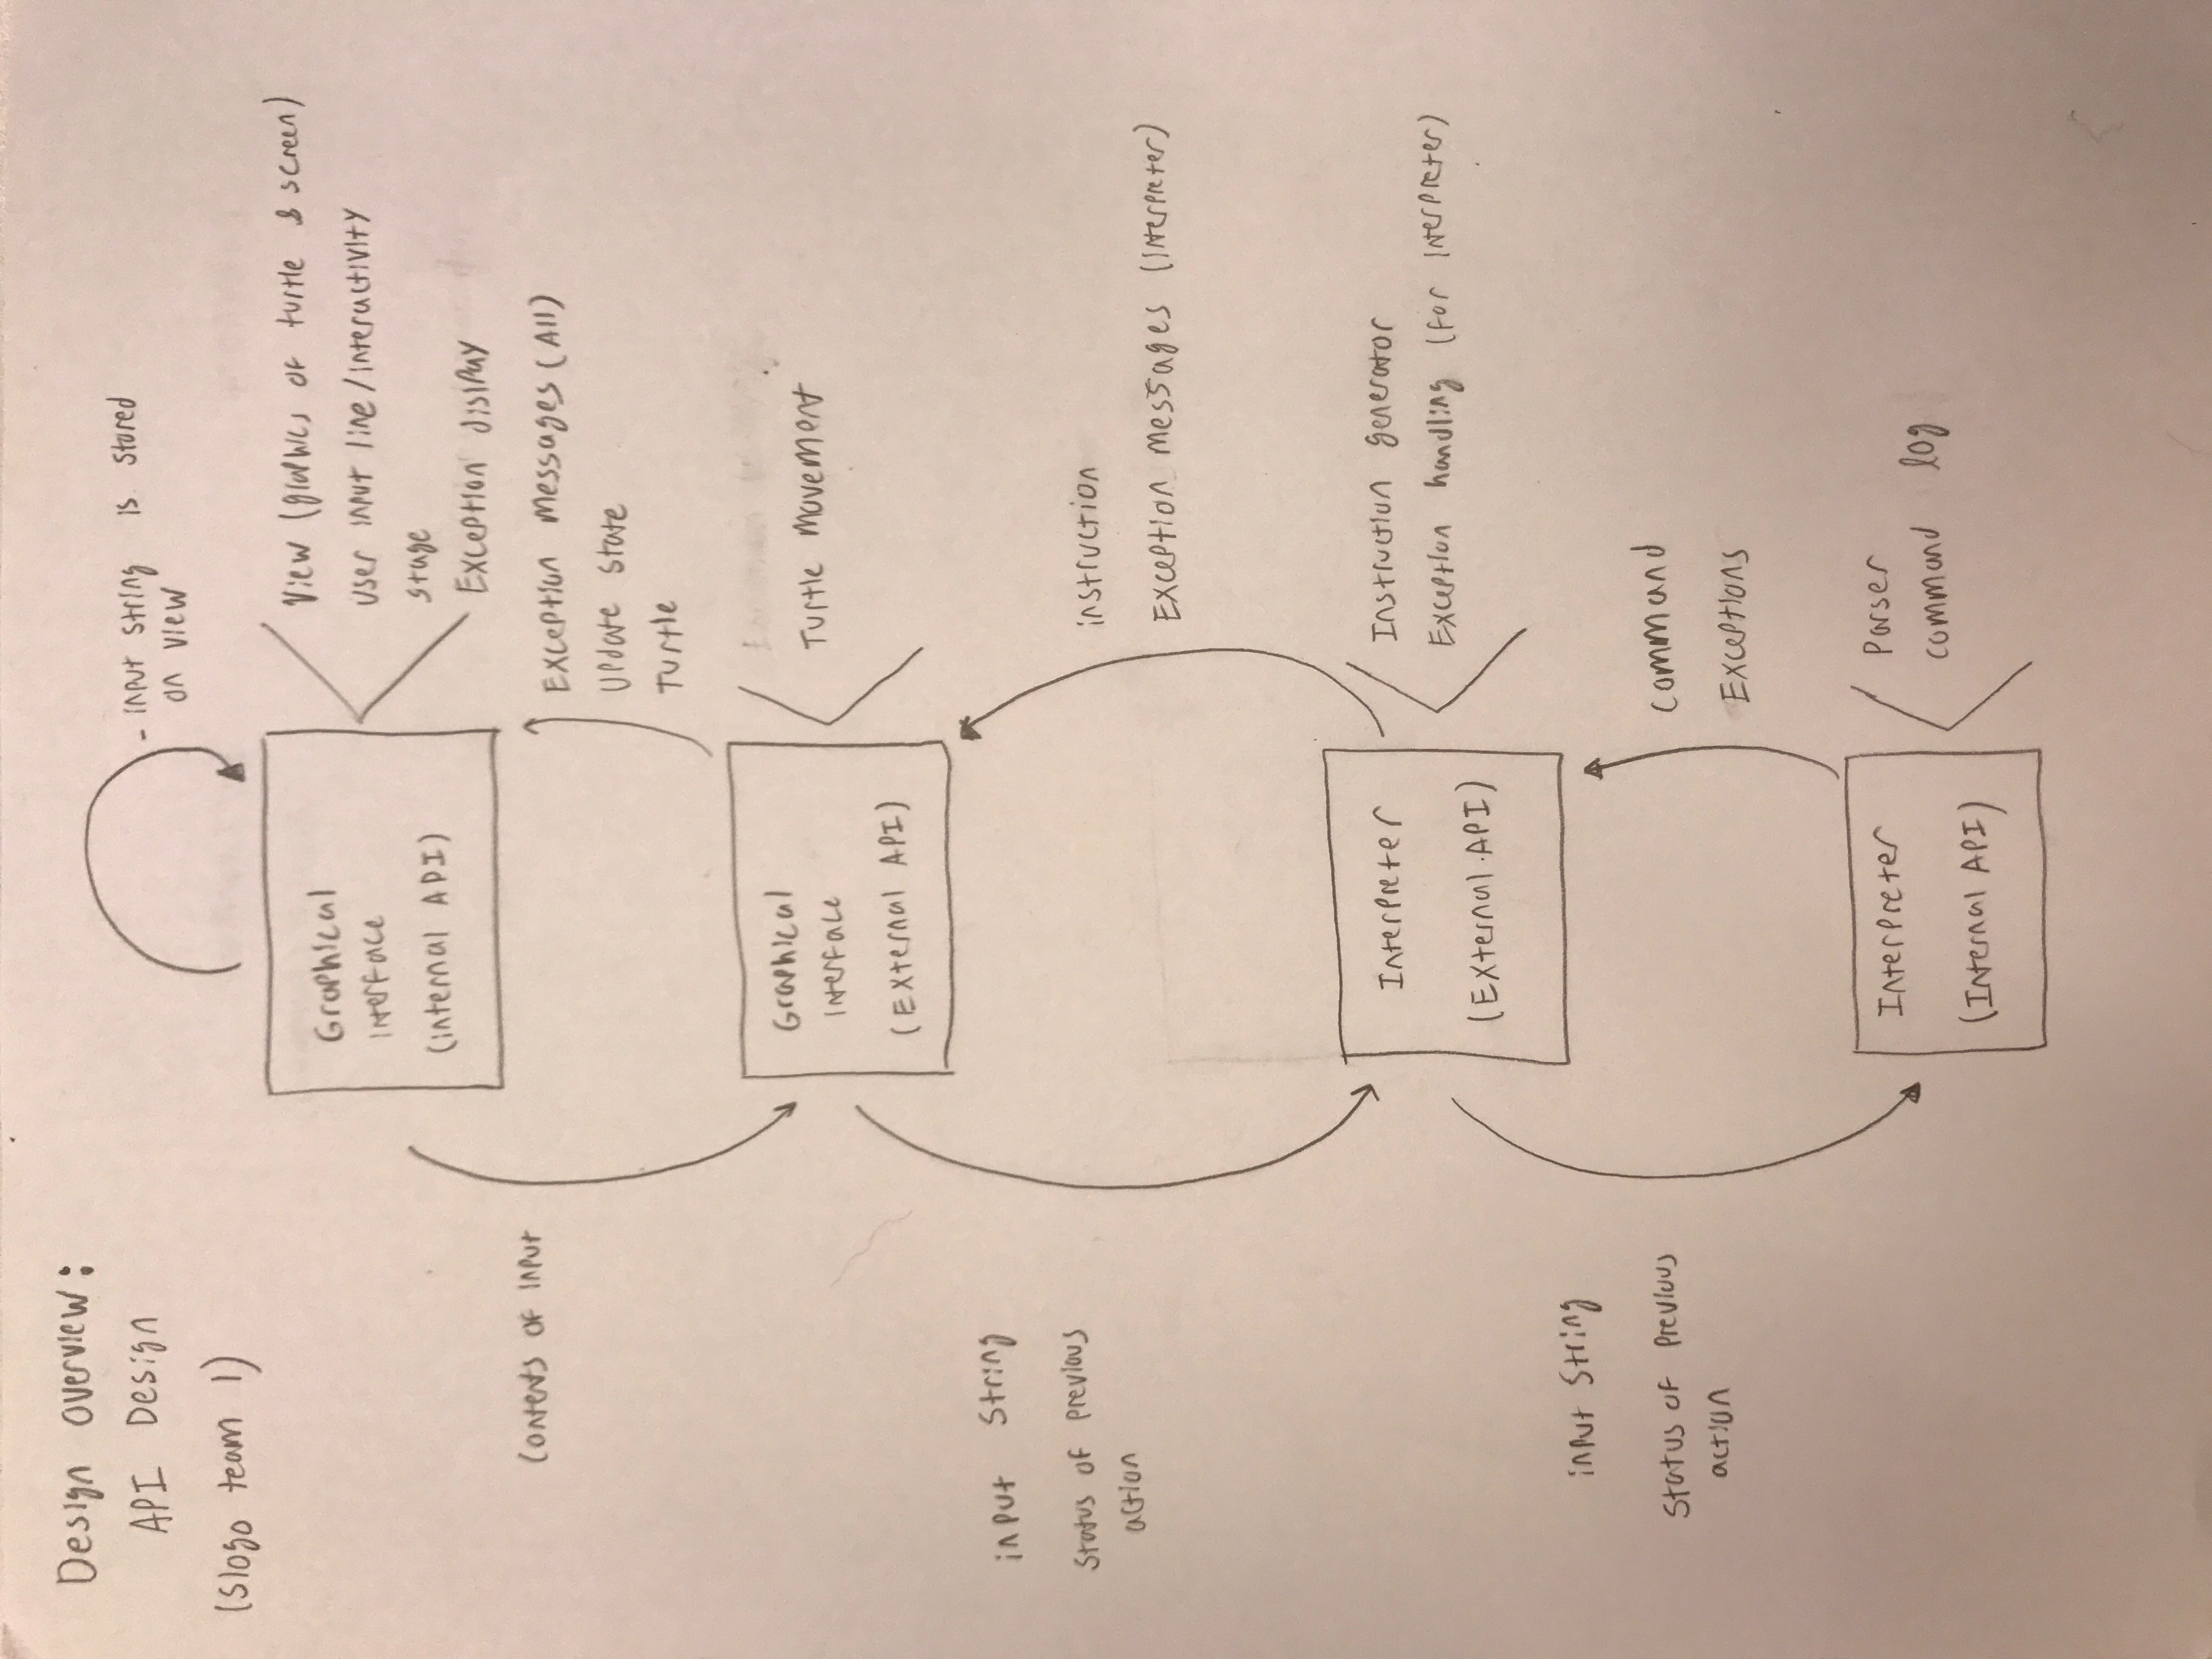 Design overview:
API Design
(Slogo team 1)
- input string is stored
on view
Graphical
interface
(internal API)
View (graphics of turtle & screen)
user input line/interactivity
stage
Exception display
Contents of input
Exception messages (All)
Update state
Turtle
Graphical
interface
(External API)
Turtle movement
input string
status of previous
action
instruction
Exception messages (interpreter)
Interpreter
(External API)
Instruction generator
Exception handling (for interpreter)
input string
status of previous
action
command
Exceptions
Interpreter
(Internal API)
Parser
command log